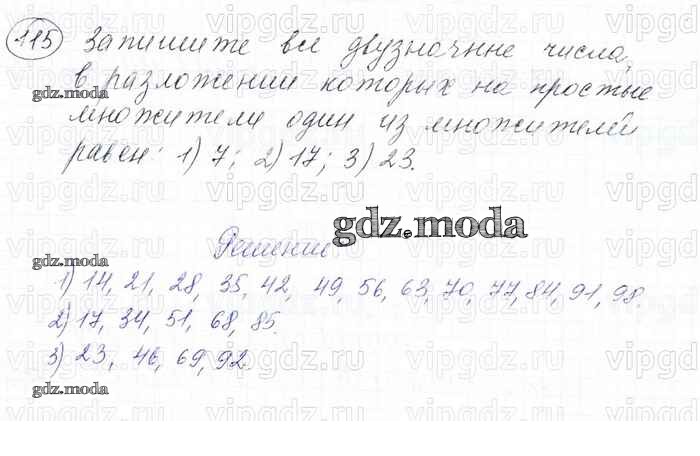 115 Запишите все двузначные числа,
в разложении которых на простые
множители один из множителей
равен: 1) 7; 2) 17; 3) 23.
gdz.moda
gdz.moda
Решение
gdz.moda
1) 14, 21, 28, 35, 42, 49, 56, 63, 70, 77, 84, 91, 98.
2) 17, 34, 51, 68, 85.
3) 23, 46, 69, 92.
gdz.moda
vipgdz.ru